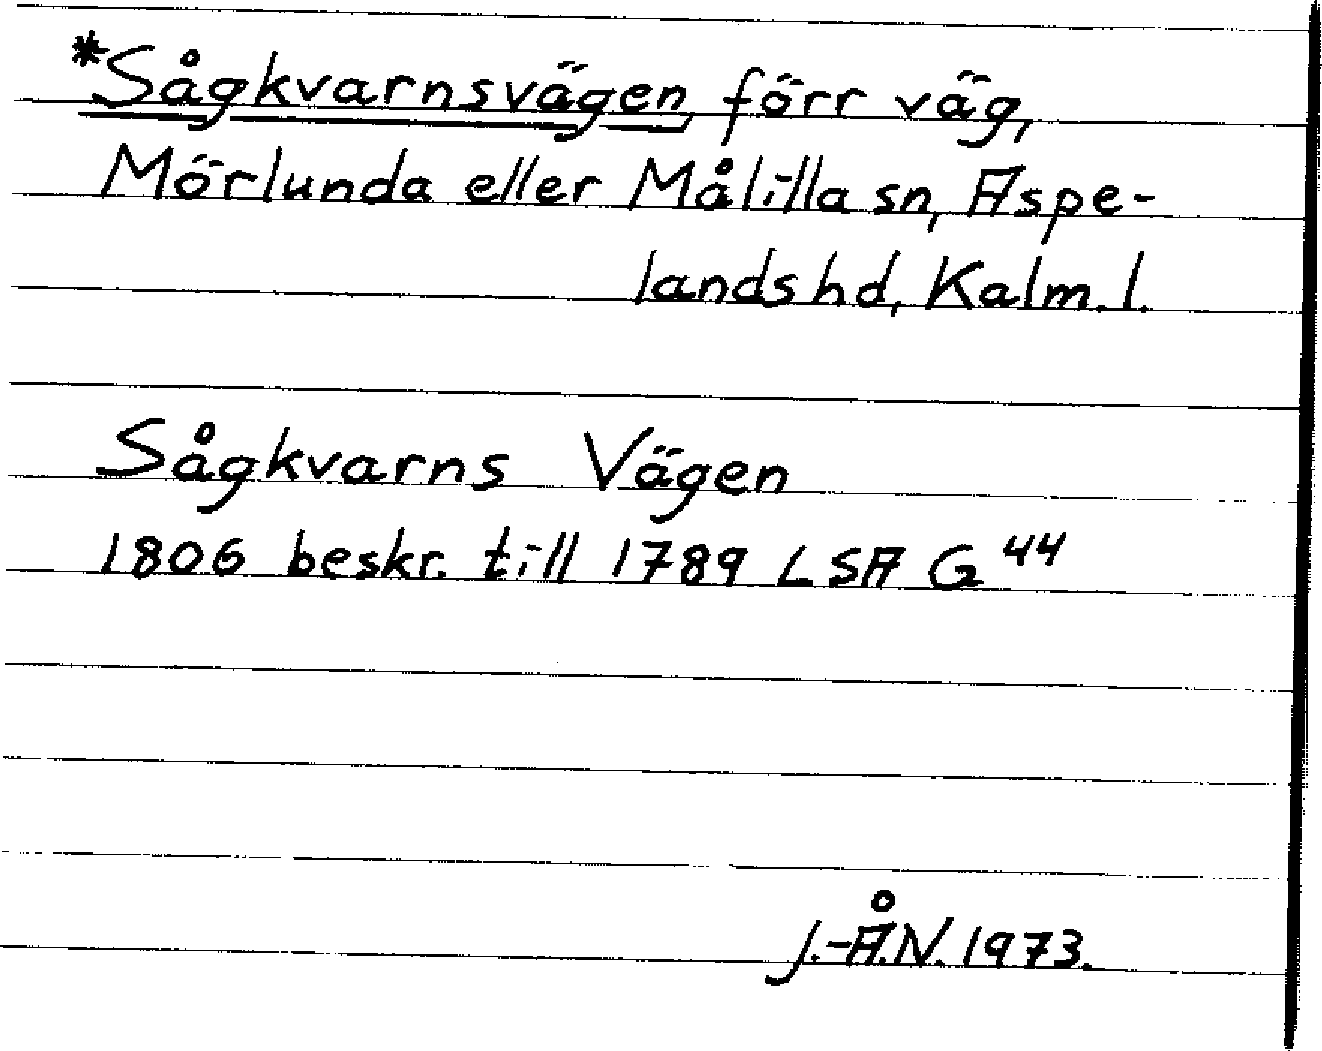 *Sågkvarnsvägen, förr väg,
Mörlunda eller Målilla sn, Aspe-
lands hd, Kalm. l.
Sågkvarns Vägen
1806 beskr. till 1789 LSA G 44
J.-Å.N. 1973.